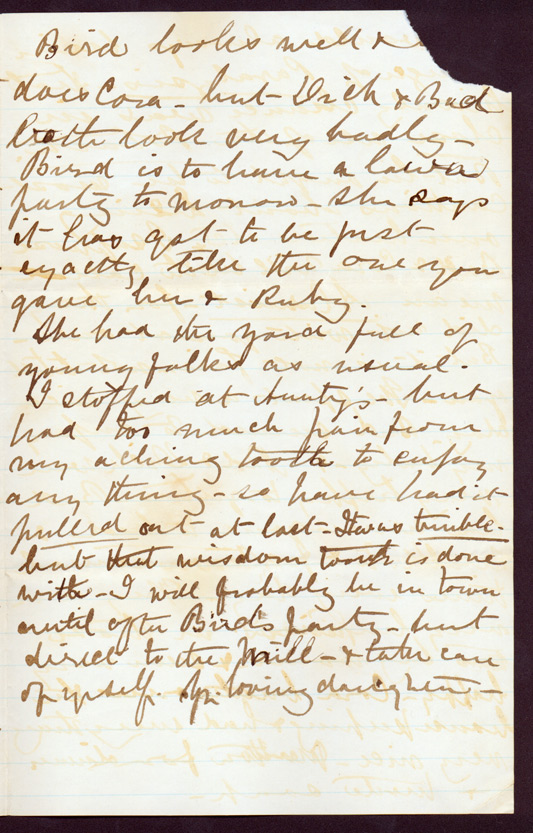 Bird looks well &
does Cora - but Dick & Bud
both look very badly -
Bird is to have a lawn
party to morrow - she says
it has got to be just
exactly like the one you
gave her & Ruby.
She had the yard full of
young folks as usual.
I stopped at Aunty's - but
had too much pain from
my aching tooth to enjoy
any thing - so have had it
pulled out at last - It was terrible -
but that wisdom tooth is done
with - I will probably be in town
until after Bird's party - but
direct to the Mill - & take care
of yrself. Yr. loving daughter -